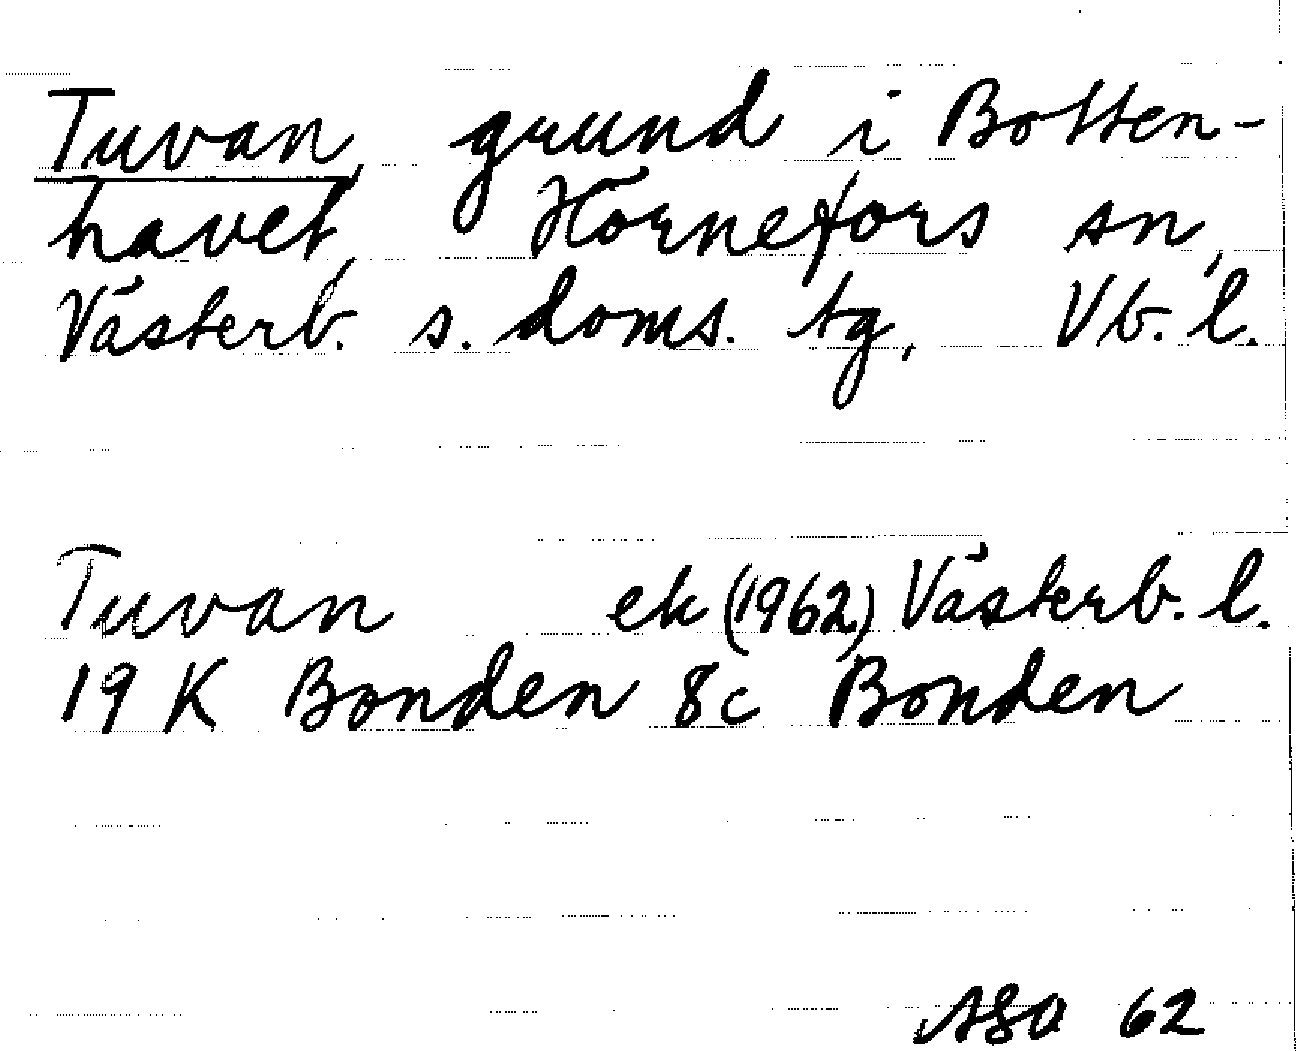 Tuvan, grund i Botten-
havet, Hörnefors sn,
Västerb. s. doms. tg, Vb. l.
Tuvan ek (1962) Västerb. l.
19 K Bonden 8c Bonden
62